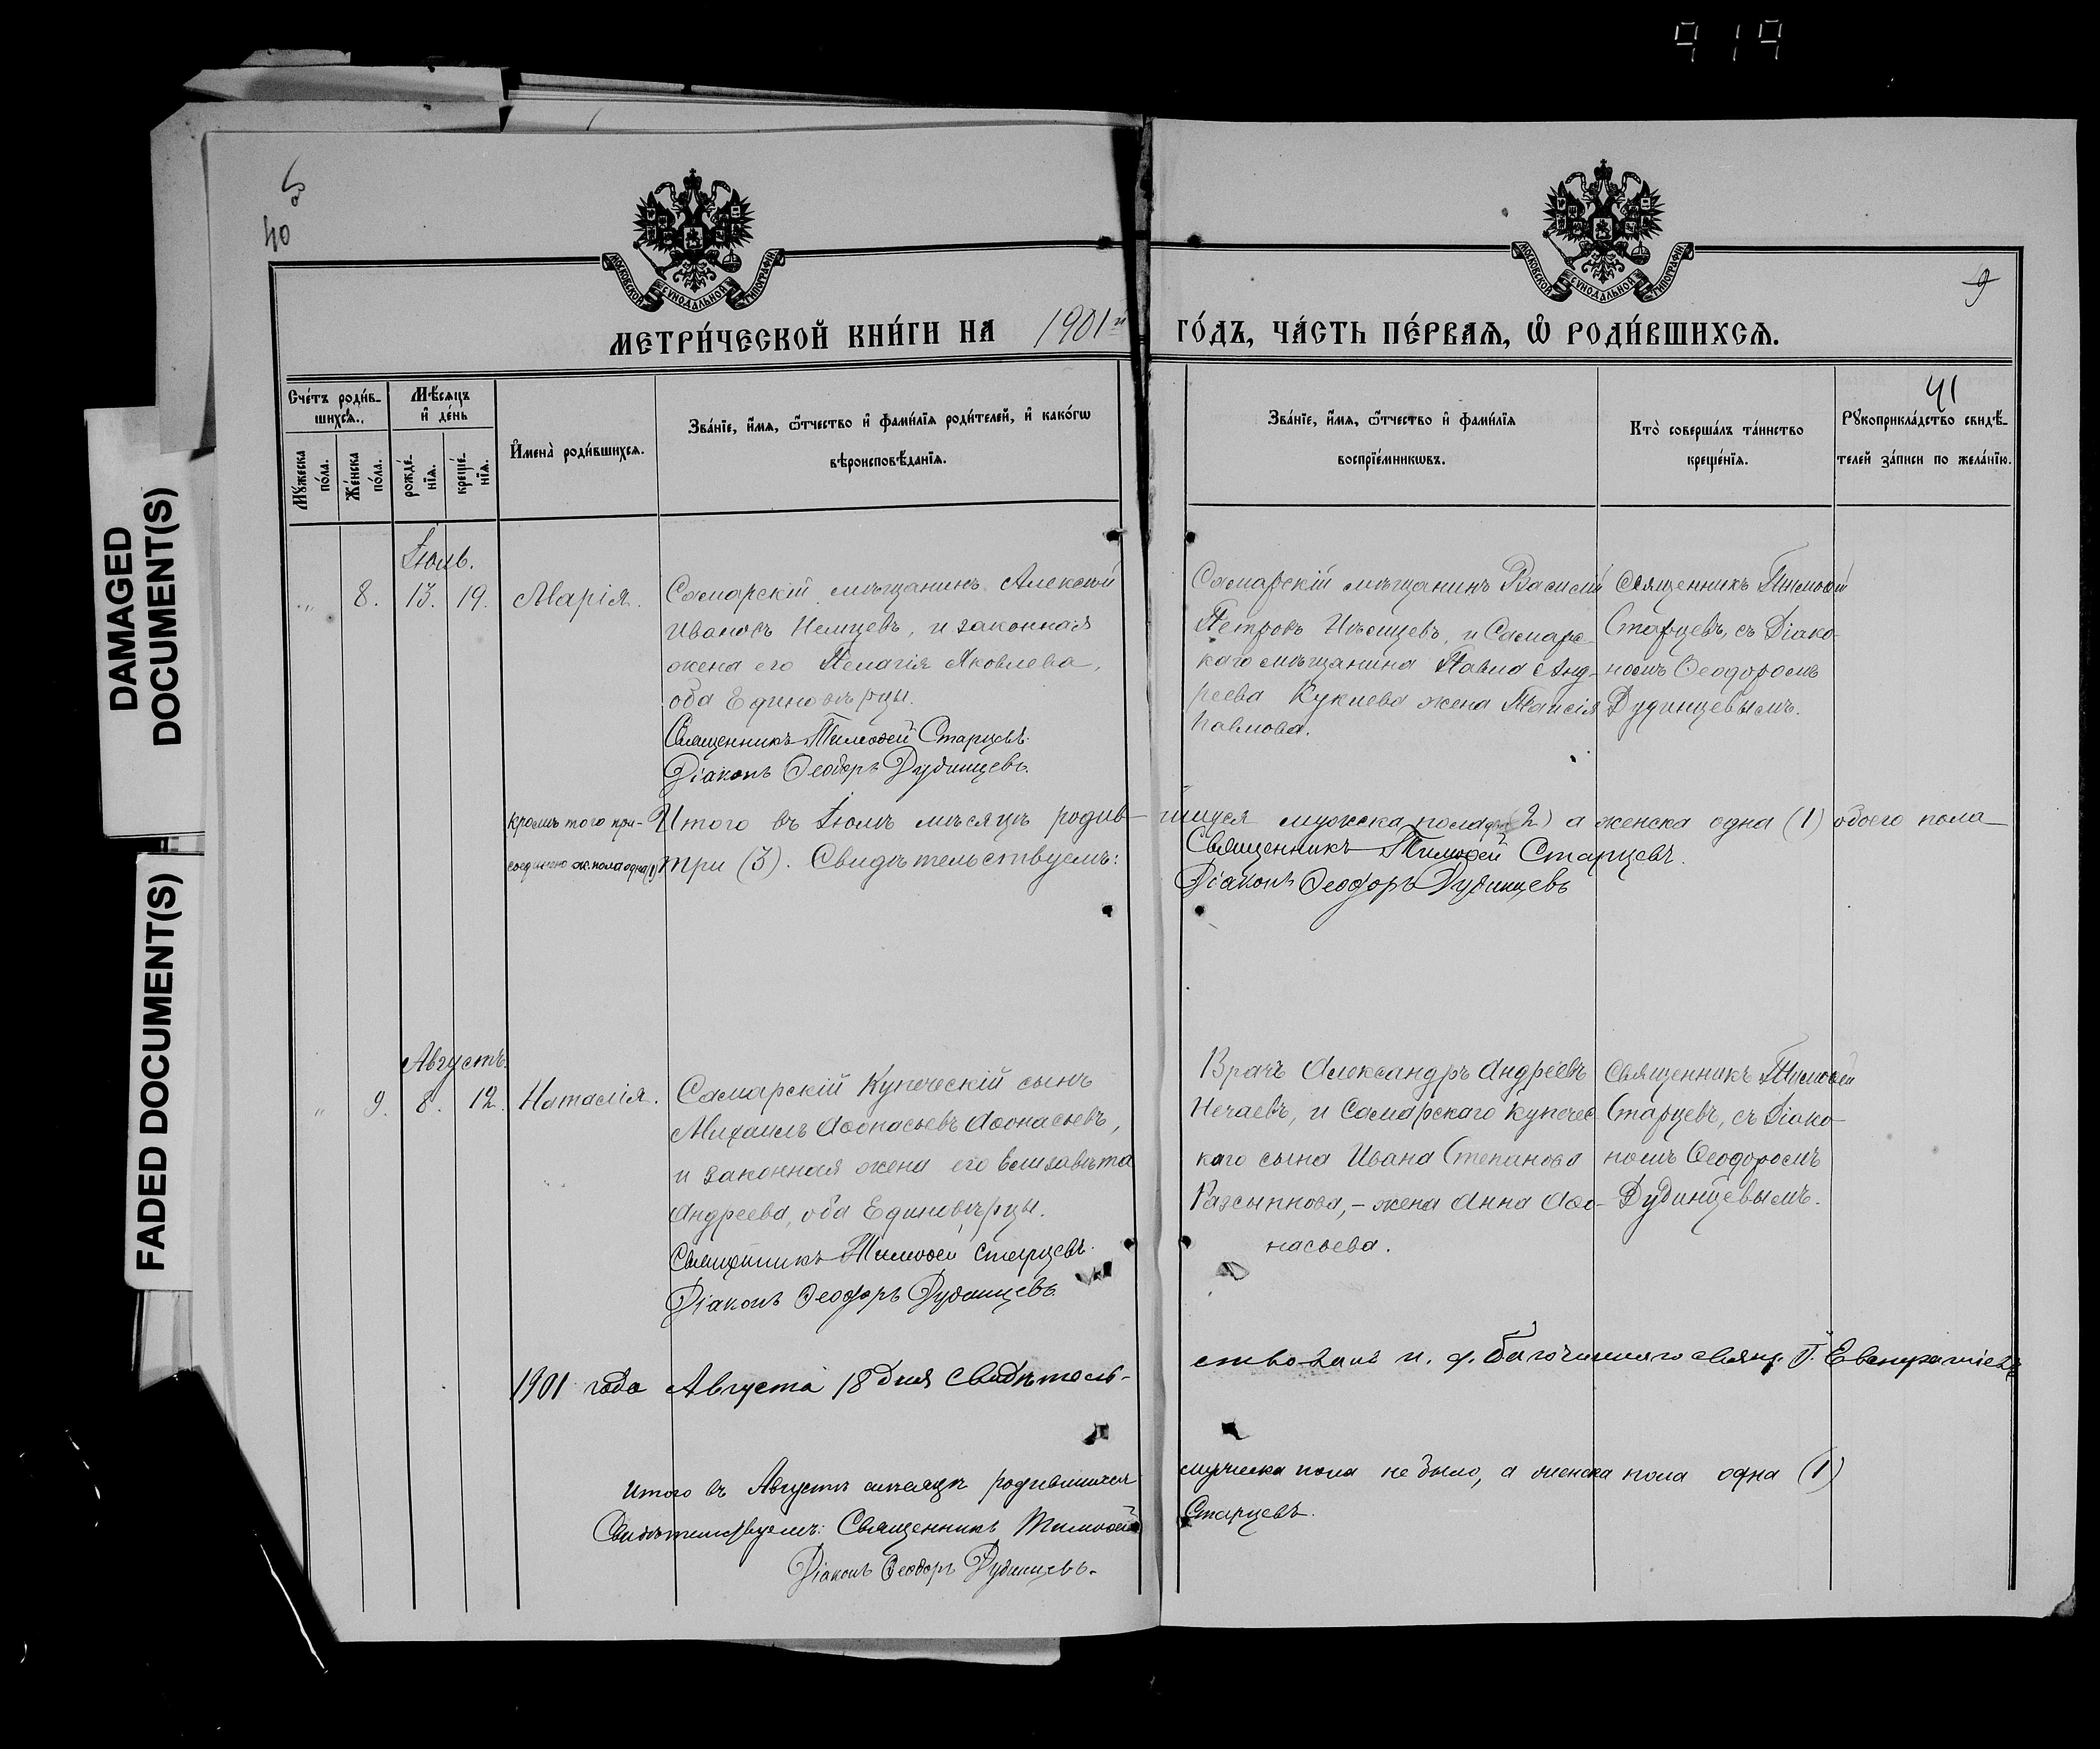 919
DAMAGED
DOCUMENT(S)
FADED DOCUMENT(S)
40
МОСКОВСКОЙ СѴНОДАЛЬНОЙ ТИПОГРАФІИ
МОСКОВСКОЙ СѴНОДАЛЬНОЙ ТИПОГРАФІИ
9
МЕТРИ́ЧЕСКОЙ КНИ́ГИ НА 1901й ГО́ДЪ, ЧА́СТЬ ПЕ́РВАѦ, Ѡ҆ РОДИ́ВШИХСѦ.
41
Сче́тъ роди́в-
шихсѧ.
Мѣ́сѧцъ
и҆ де́нь
Мꙋ́жеска
по́ла.
Же́нска
по́ла.
рожде́-
нїѧ.
креще́-
нїѧ.
И҆мена̀ роди́вшихсѧ.
Зва́нїе, и҆́мѧ, ѻ҆́тчество и҆ фами́лїѧ роди́телей, и҆ како́гѡ
вѣроисповѣ́данїѧ.
Зва́нїе, и҆́мѧ, ѻ҆́тчество и҆ фами́лїѧ
воспрїе́мникѡвъ.
Кто̀ соверша́лъ та́инство
креще́нїѧ.
Рꙋкоприкла́дство свидѣ́-
телей за́писи по жела́нїю.
Іюль.
„ 8. 13. 19. Марія.
Самарскій мѣщанинъ Алексѣй
Ивановъ Немцевъ, и законная
жена его Пелагія Яковлева,
оба Единовѣрцы.
Священникъ Тимоѳей Старцевъ.
Діаконъ Ѳеодоръ Дудинцевъ.
Самарскій мѣщанинъ Василій
Петровъ Нѣмцевъ, и Самарс-
каго мѣщанина Павла Анд-
реева Кукнева жена Таисія
Павлова.
Священникъ Тимоѳей
Старцевъ, съ Діако-
номъ Ѳеодоромъ
Дудинцевымъ.
кромѣ того при-
соединено ж. пола одна (1)
Итого въ Іюлѣ мѣсяцѣ родив-шихся мужска пола два (2) а женска одна (1) обоего пола
три (3). Свидѣтельствуемъ: Священникъ Тимоѳей Старцевъ.
Діаконъ Ѳеодоръ Дудинцевъ
Августъ.
„ 9. 8. 12. Наталія.
Самарскій Купеческій сынъ
Михаилъ Аѳонасьевъ Аѳонасьевъ,
и законная жена его Елизавѣта
Андреева, оба Единовѣрцы.
Священникъ Тимоѳей Старцевъ.
Діаконъ Ѳеодоръ Дудинцевъ
Врачъ Александръ Андреевъ
Нечаевъ, и Самарскаго купечес-
каго сына Ивана Степанова
жена Анна Аѳо-
насьева.
Священникъ Тимоѳей
Старцевъ, съ Діако-
номъ Ѳеодоромъ
Дудинцевымъ.
1901 года Августа 18 дня Свидѣтель-ствовалъ и. д. благочиннаго свящ. П. Евстратіевъ
Итого въ Августѣ мѣсяцѣ родившихся мужеска пола не было, а женска пола одна (1)
Свидѣтельствуемъ: Священникъ Тимоѳей Старцевъ.
Діаконъ Ѳеодоръ Дудинцевъ.